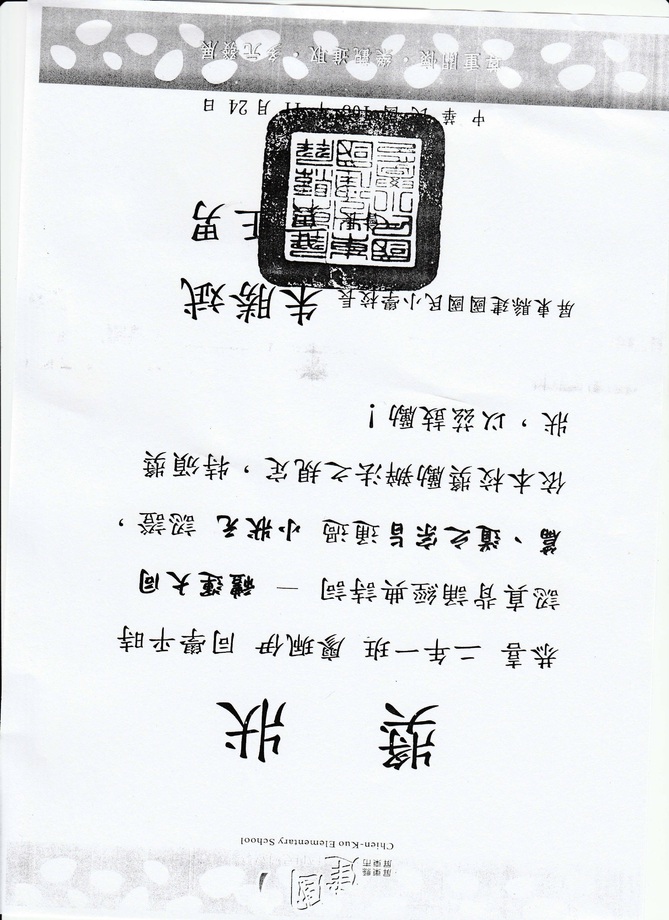 建國
屏東縣
屏東市
Chien-Kuo Elementary School
獎 狀
恭喜 二年一班 廖珮伊 同學平時
認真背誦經典詩詞 — 禮運大同
篇、道之宗旨通過 小狀元 認證,
依本校獎勵辦法之規定,特頒獎
狀,以茲鼓勵!
屏東縣建國國民小學校長 朱勝斌
男
中華民國 106 年 11 月 24 日
尊重關懷・樂觀進取・多元發展